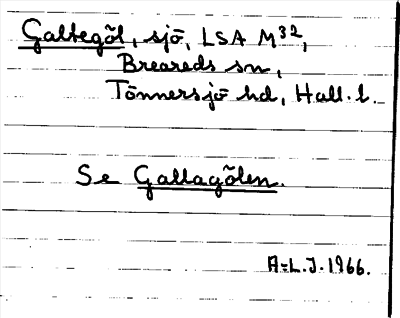 Galtegöl, sjö, LSA M32,
Breareds sn,
Tönnersjö hd, Hall. l.
Se Gallagölen.
A-L.J. 1966.